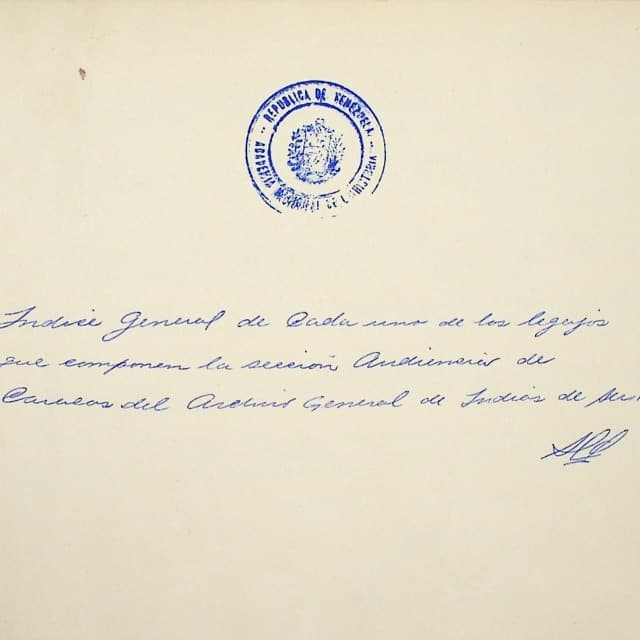 REPUBLICA DE VENEZUELA
ACADEMIA NACIONAL DE L HISTORIA
Indice General de Cada uno de los legajos
que componen la sección Audiencia de
Caracas del Archivo General de Indias de